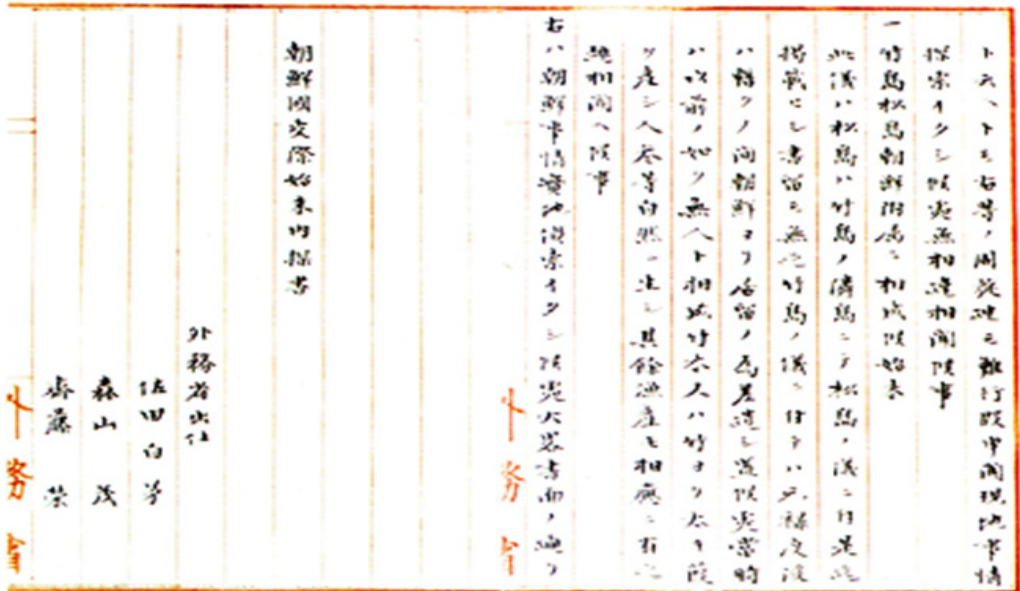 ト云ヘトモ右等ノ周旋迚モ難行段申聞現地事情
探索イタシ候処無相違相聞候事
一竹島松島朝鮮附属ニ相成候始末
此儀ハ松島ハ竹島ノ隣島ニテ松島ノ儀ニ付是迄
掲載セシ書留モ無之竹島ノ儀ニ付テハ元禄度後
ハ暫クノ間朝鮮ヨリ居留ノ為差遣シ置候処當時
ハ以前ノ如ク無人ト相成竹木又ハ竹ヨリ太キ葭
ヲ産シ人参等自然ニ生シ其餘漁産モ相應ニ有之
趣相聞ヘ候事
右ハ朝鮮事情實地偵索イタシ候処大畧書面ノ通リ
外務省
朝鮮國交際始末内探書
外務省出仕
佐田白茅
森山茂
齋藤榮
外務省